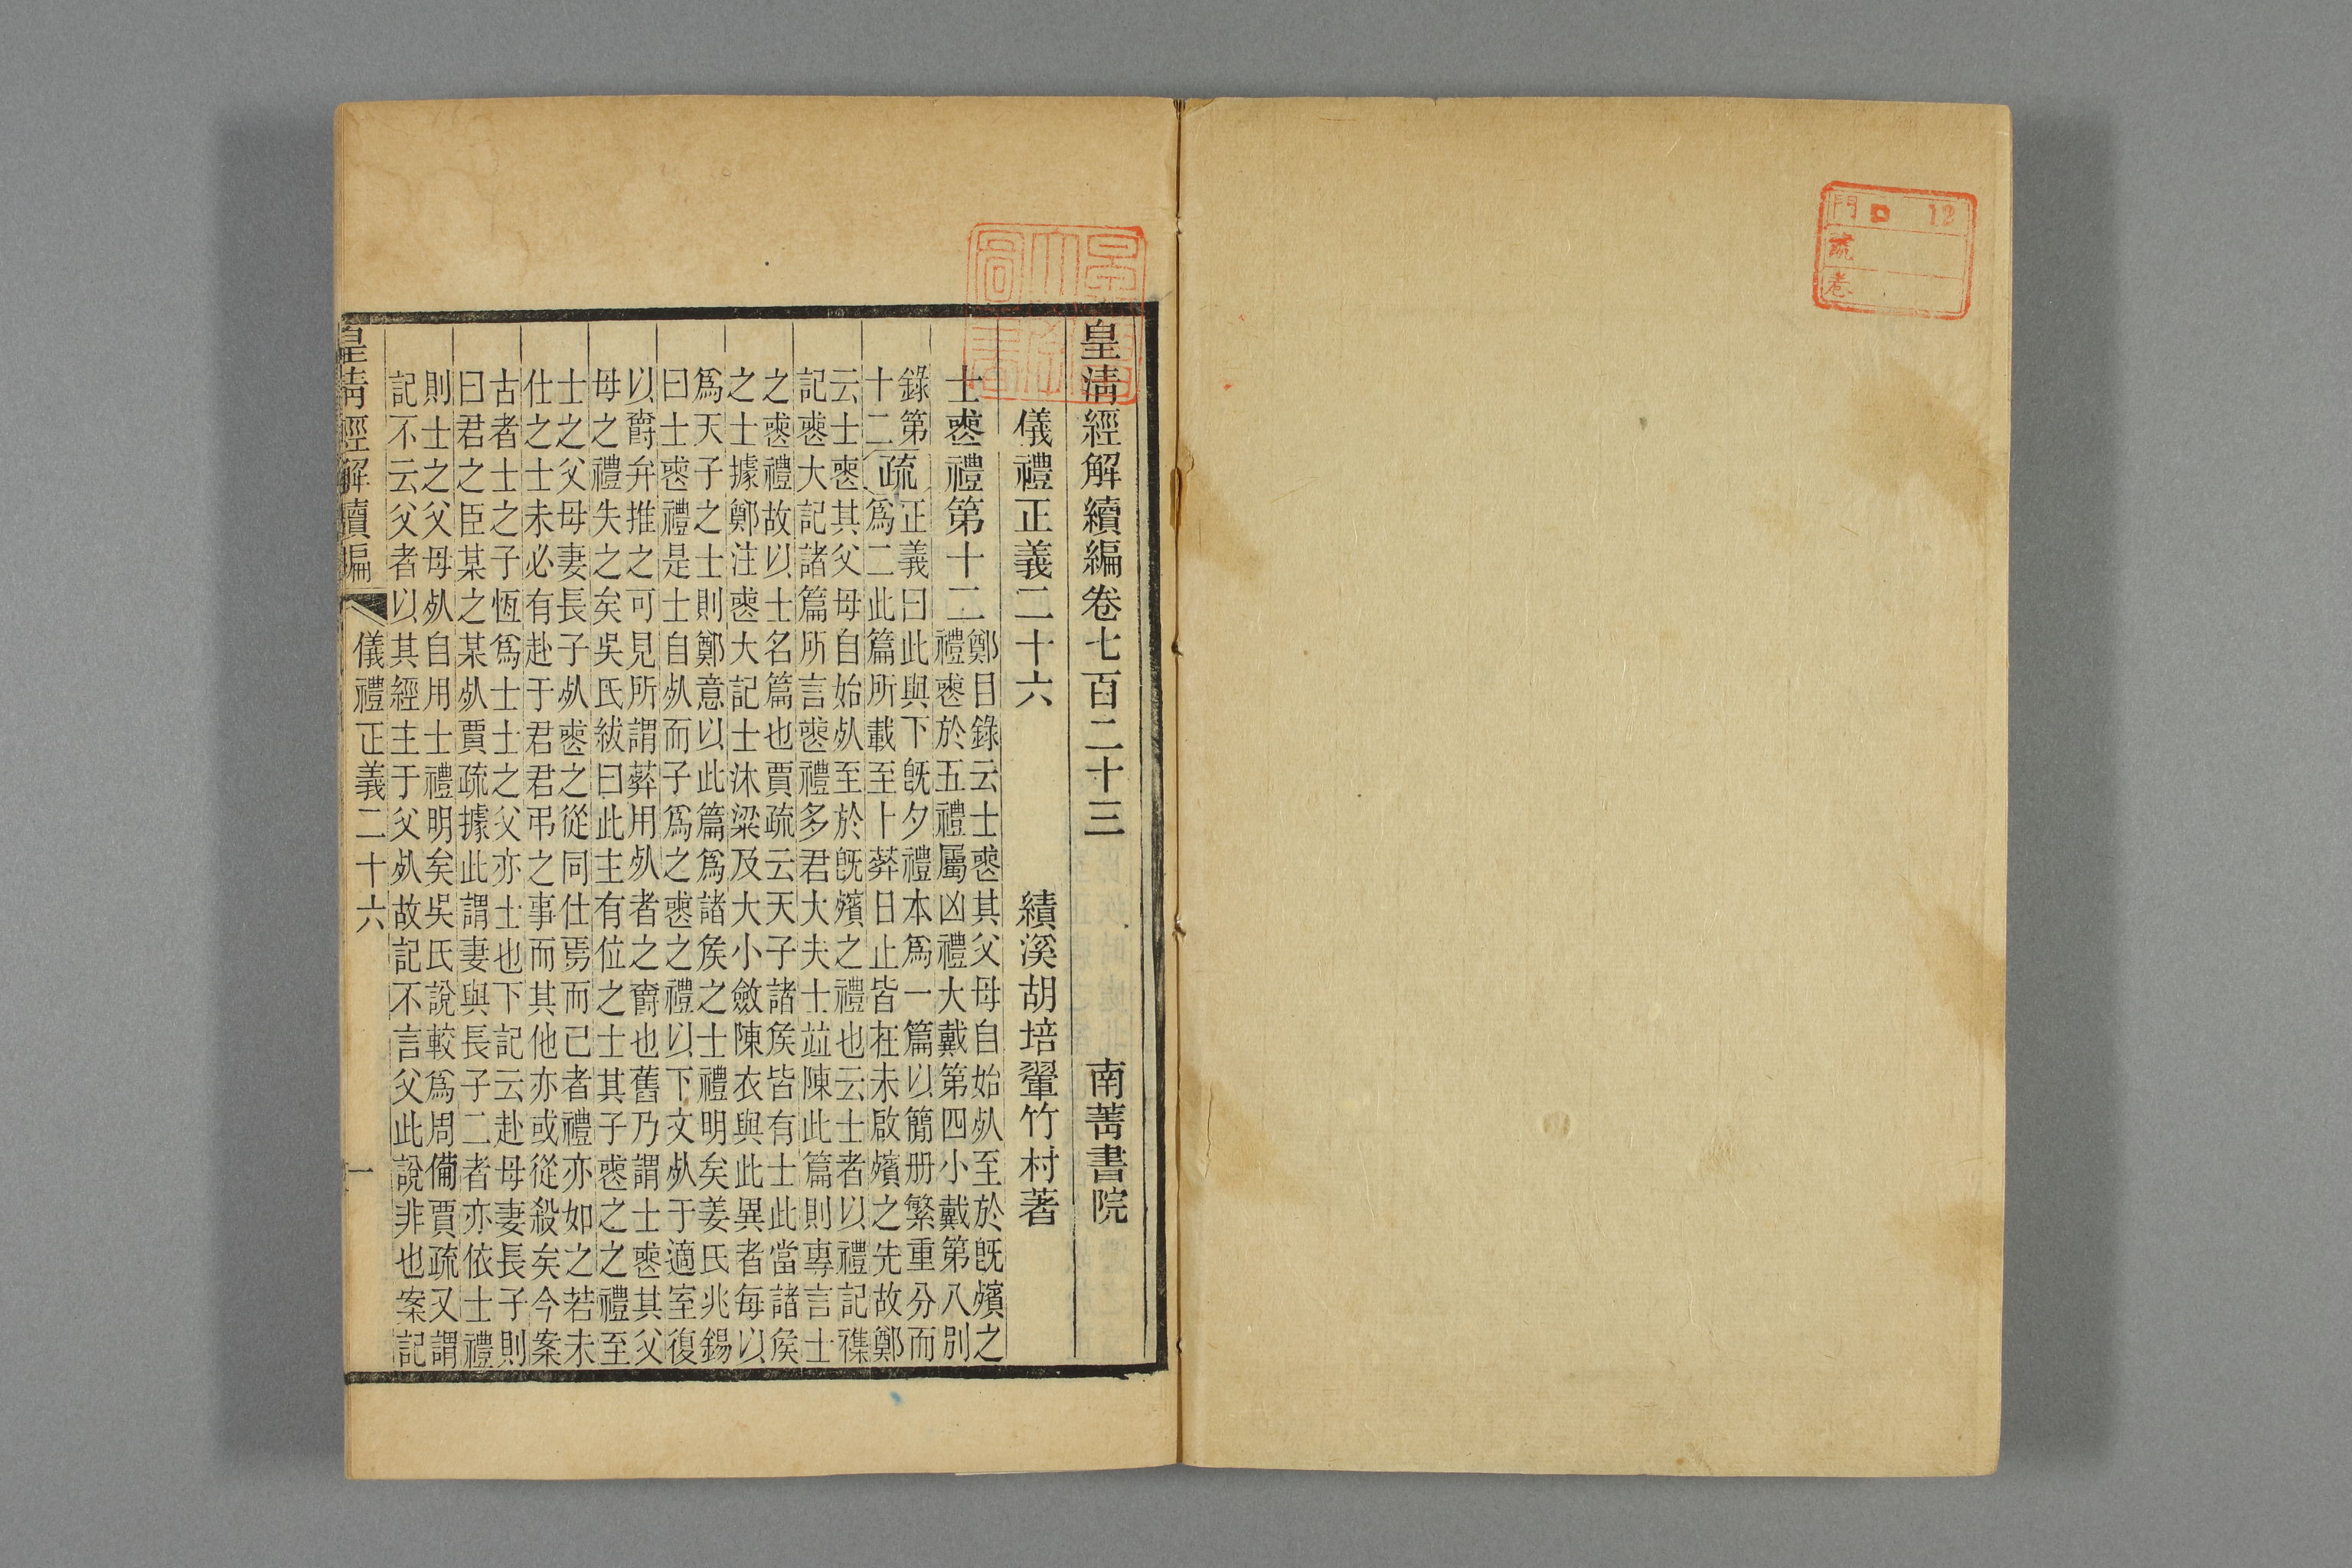 門 12
號
卷
皇清經解續編卷七百二十三 南菁書院
儀禮正義二十六 績溪胡培翬竹村著
士䘮禮第十二 鄭目錄云士䘮其父母自始𣦸至於旣殯之
禮䘮於五禮屬凶禮大戴第四小戴第八別
錄第
十二
疏
正義曰此與下旣夕禮本爲一篇以簡册繁重分而
爲二此篇所載至卜葬日止皆在未啟殯之先故鄭
云士䘮其父母自始𣦸至於旣殯之禮也云士者以禮記襍
記䘮大記諸篇所言䘮禮多君大夫士竝陳此篇則專言士
之䘮禮故以士名篇也賈疏云天子諸矦皆有士此當諸矦
之士據鄭注䘮大記士沐粱及大小斂陳衣與此異者每以
爲天子之士則鄭意以此篇爲諸矦之士禮明矣姜氏兆錫
曰士䘮禮是士自𣦸而子爲之䘮之禮以下文𣦸于適室復
以爵弁推之可見所謂葬用𣦸者之爵也舊乃謂士䘮其父
母之禮失之矣吳氏紱曰此主有位之士其子䘮之之禮至
士之父母妻長子𣦸䘮之從同仕焉而已者禮亦如之若未
仕之士未必有赴于君君弔之事而其他亦或從殺矣今案
古者士之子恆爲士士之父亦士也下記云赴母妻長子則
曰君之臣某之某𣦸賈疏據此謂妻與長子二者亦依士禮
則士之父母𣦸自用士禮明矣吳氏說較爲周備賈疏又謂
記不云父者以其經主于父𣦸故記不言父此說非也案記
皇清經解續編 儀禮正義二十六 一